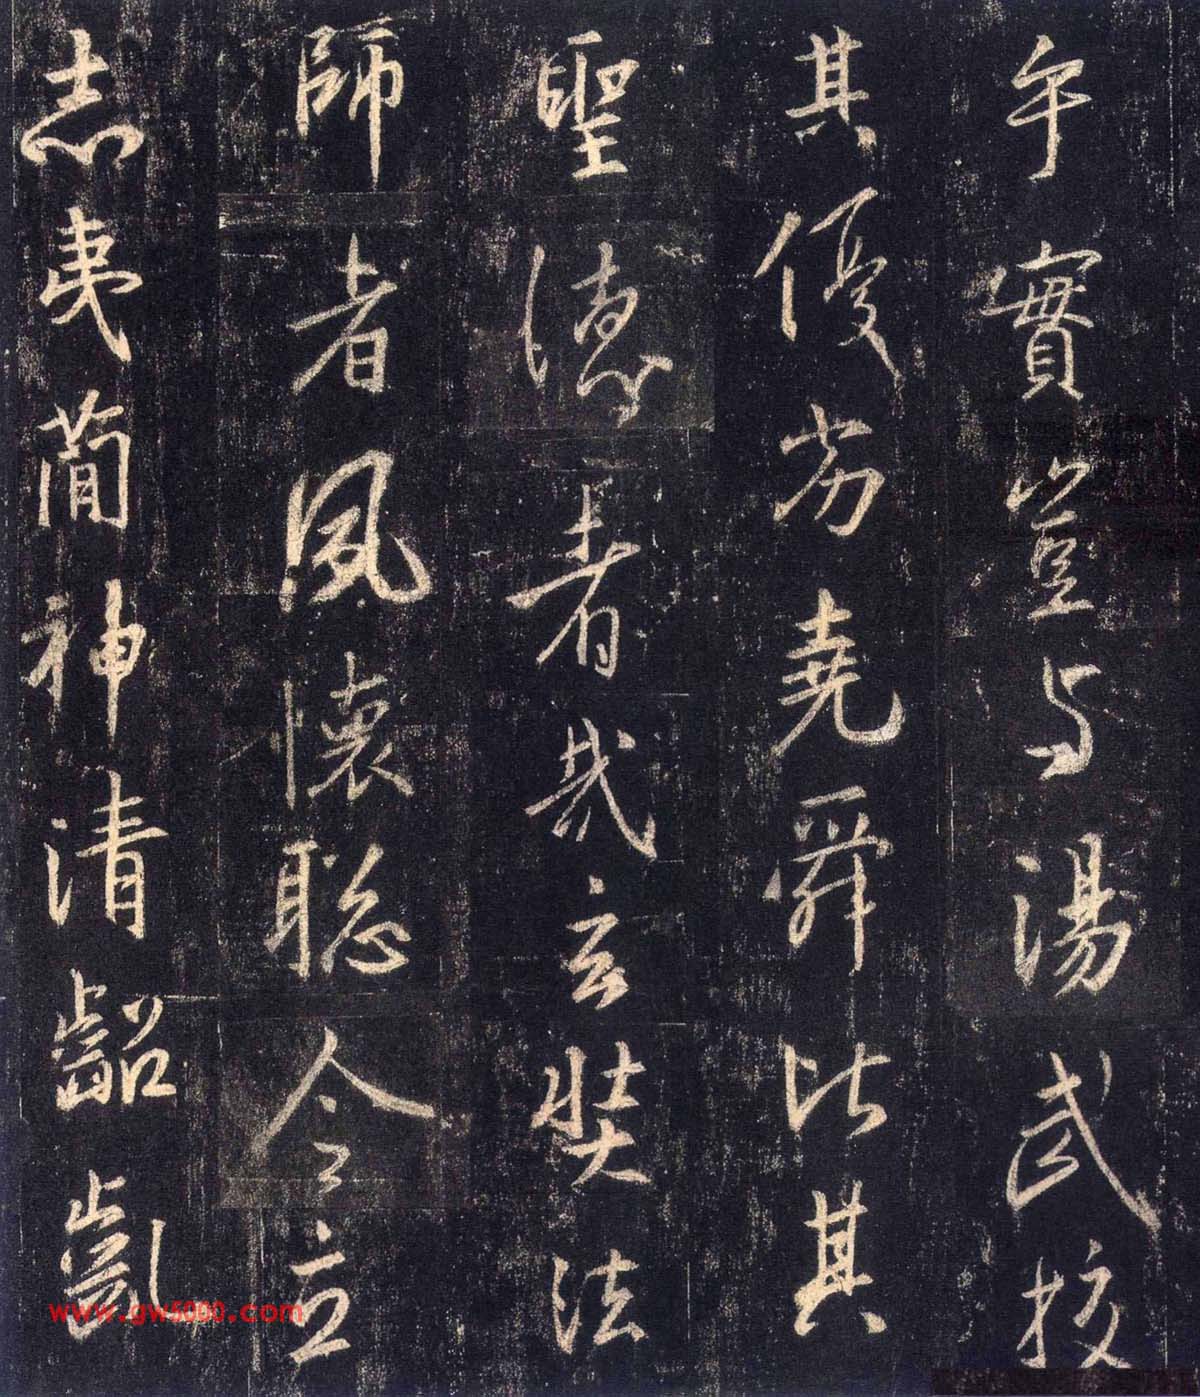 乎實豈与湯武校
其優劣堯舜比其
聖德者哉玄奘法
師者夙懷聡令立
志夷蕳神清齠齓
www.gw5000.com